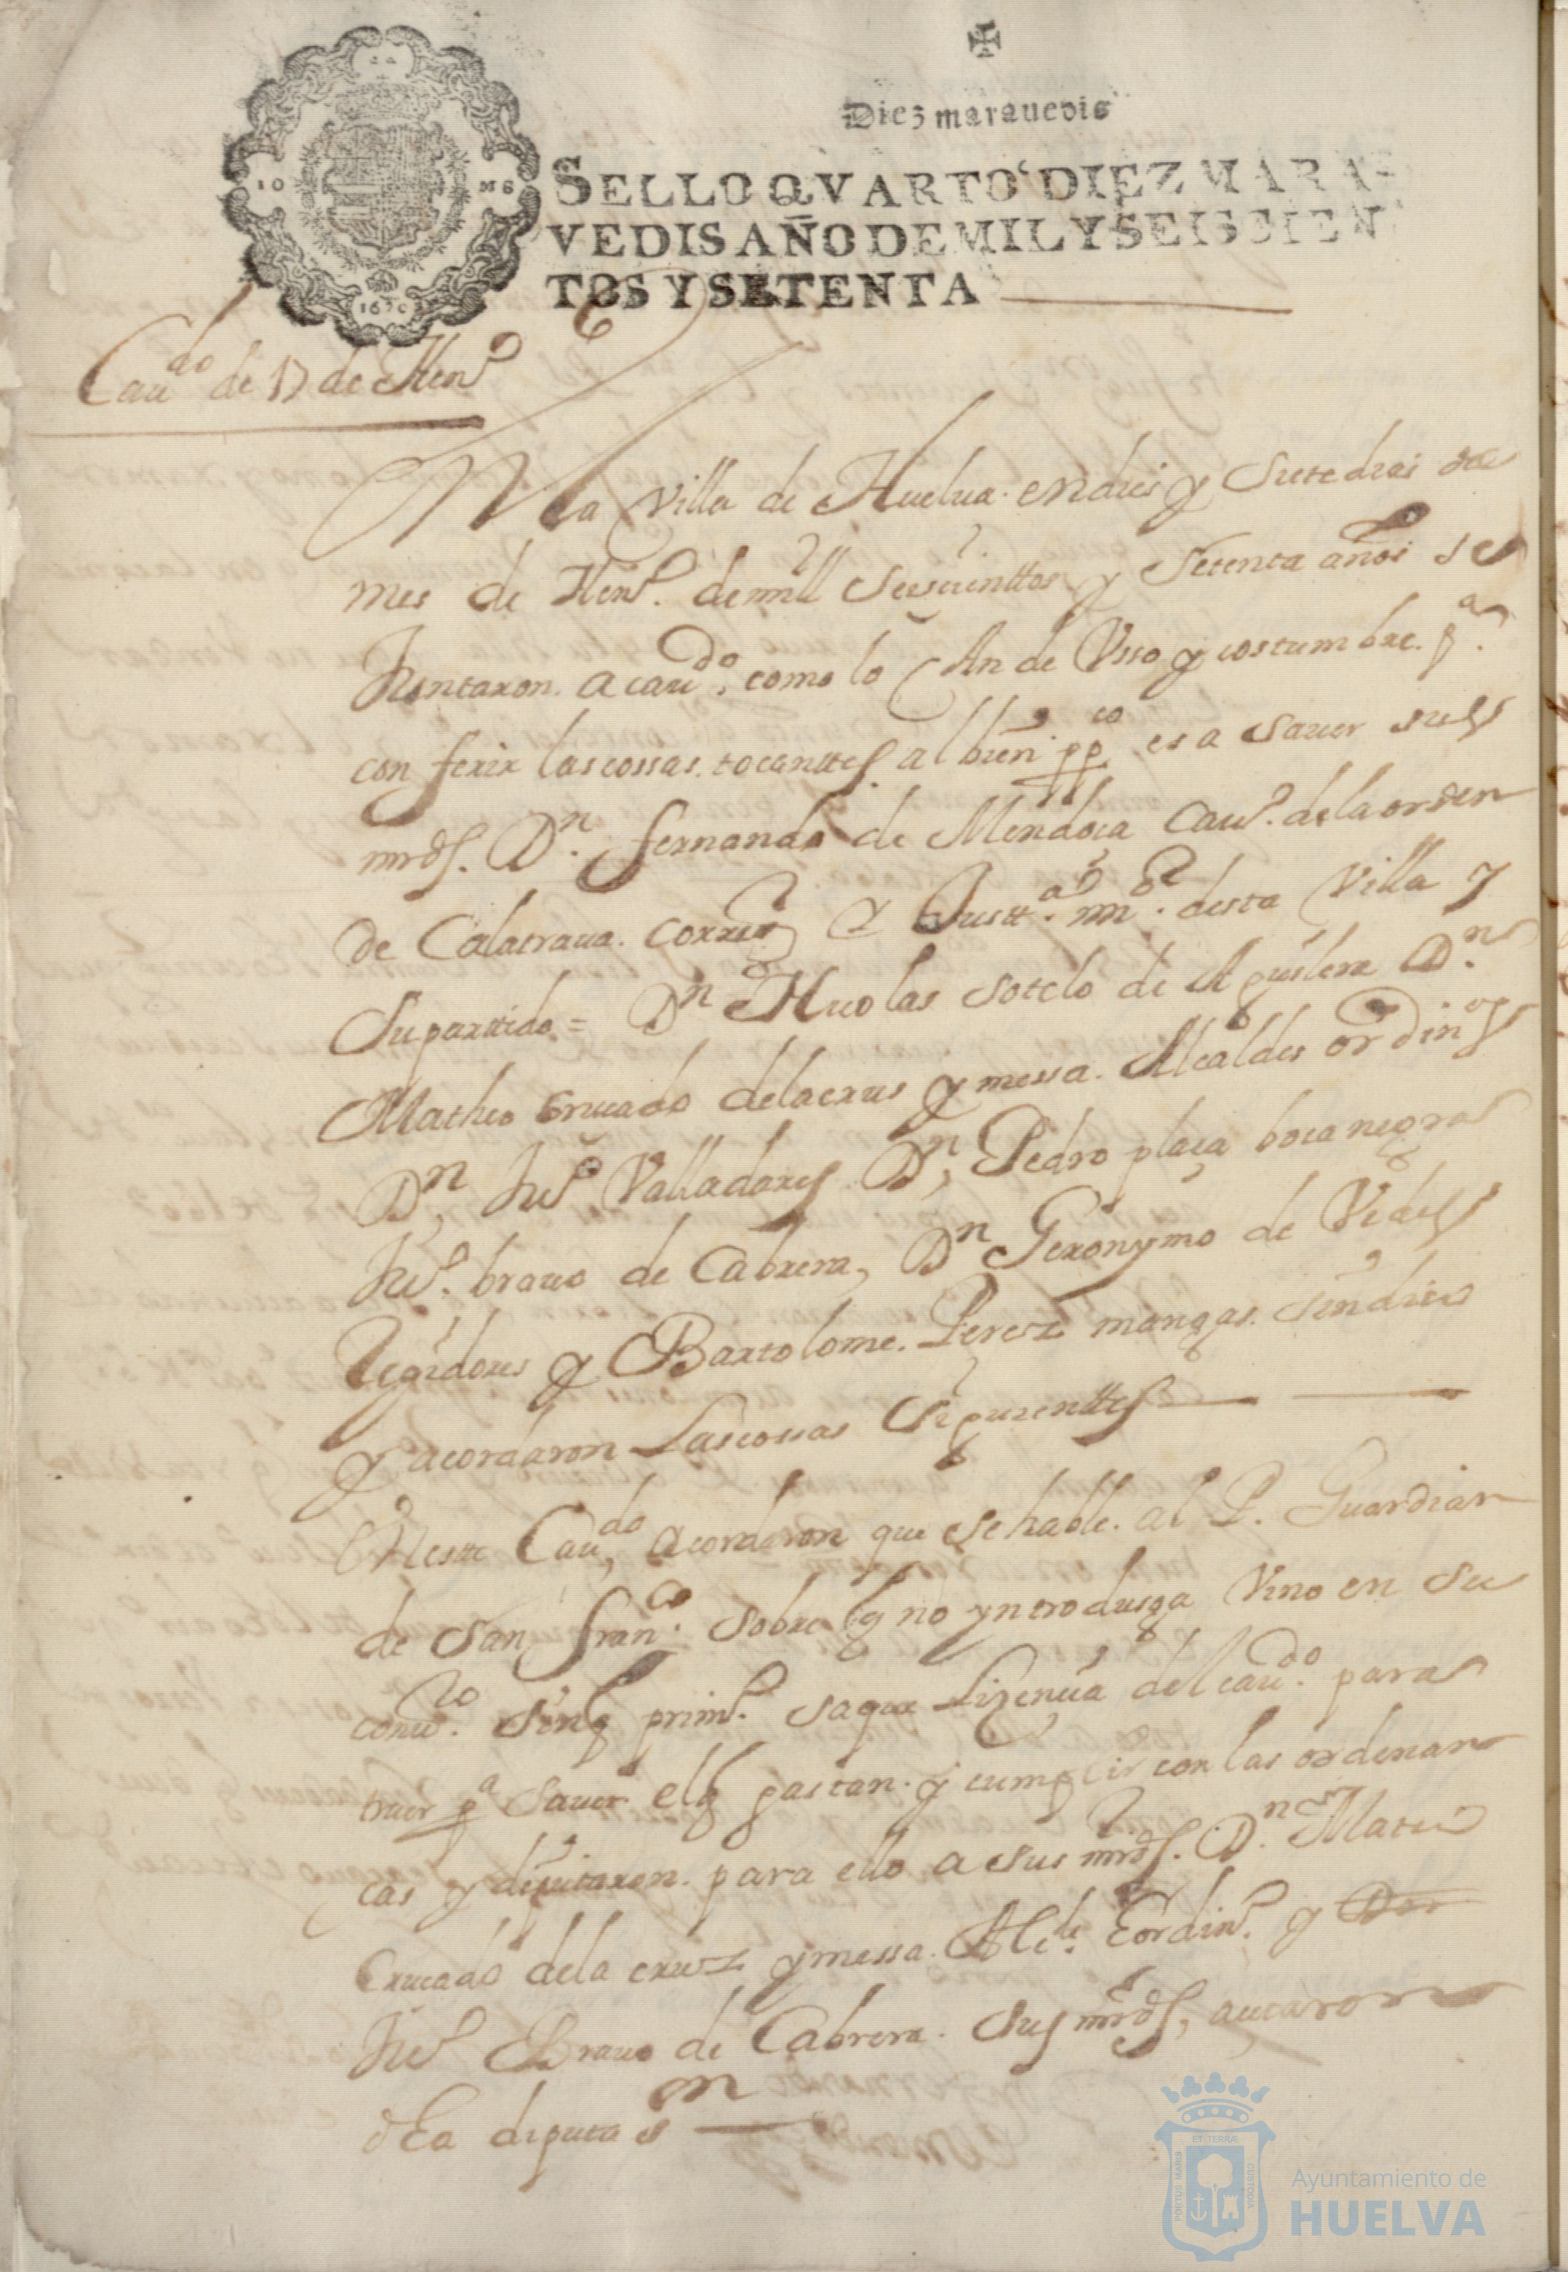 Diez marauedis
SELLO QVARTO DIEZ MARA-
VEDIS AÑO DE MIL Y SEISCIEN
TOS Y SETENTA
10 MS
1670
Cau.do de 17 de Hen.o
En la Villa de Huelua en dies y Siete dias del
mes de Hen.o de mill Seiscienttos y Setenta años se
Juntaron a cau.do como lo An de Vsso y costumbre p.a
conferir las cossas tocanttes al bien pp.co es a sauer sus
mrds. D.n fernando de Mendoça Cau.o de la orden
de Calatraua corre.or y Justt.a m.or desta Villa y
Su parttido = D.n Nicolas Sotelo de Aguilera D.n
Matheo Crucado de la crus y messa Alcaldes ordin.os
D.n Ju.o Valladares D.n Pedro plaça bocanegra
Ju.o brauo de Cabrera, D.n Geronymo de Vides
Regidores y Bartolome Perez mangas sindico
y acordaron Las cossas Siguienttes
En estte Cau.do acordaron que se hable al P. Guardian
de San fran.co Sobre q no yntrodusga Vino en Su
conu.to sin q prim.o saque Lizencia del cau.do para
traer p.a Sauer el q gastan y cumplir con las ordenan
cas y diputaron para ello a sus mrds. D.n Mateo
Crucado de la cruz y messa Alc.de hordin.o y
Ju.o Brauo de Cabrera. Sus mrds, aucaron
dha diputaon
PORTUS MARIS
ET TERRÆ
CUSTODIA
Ayuntamiento de
HUELVA